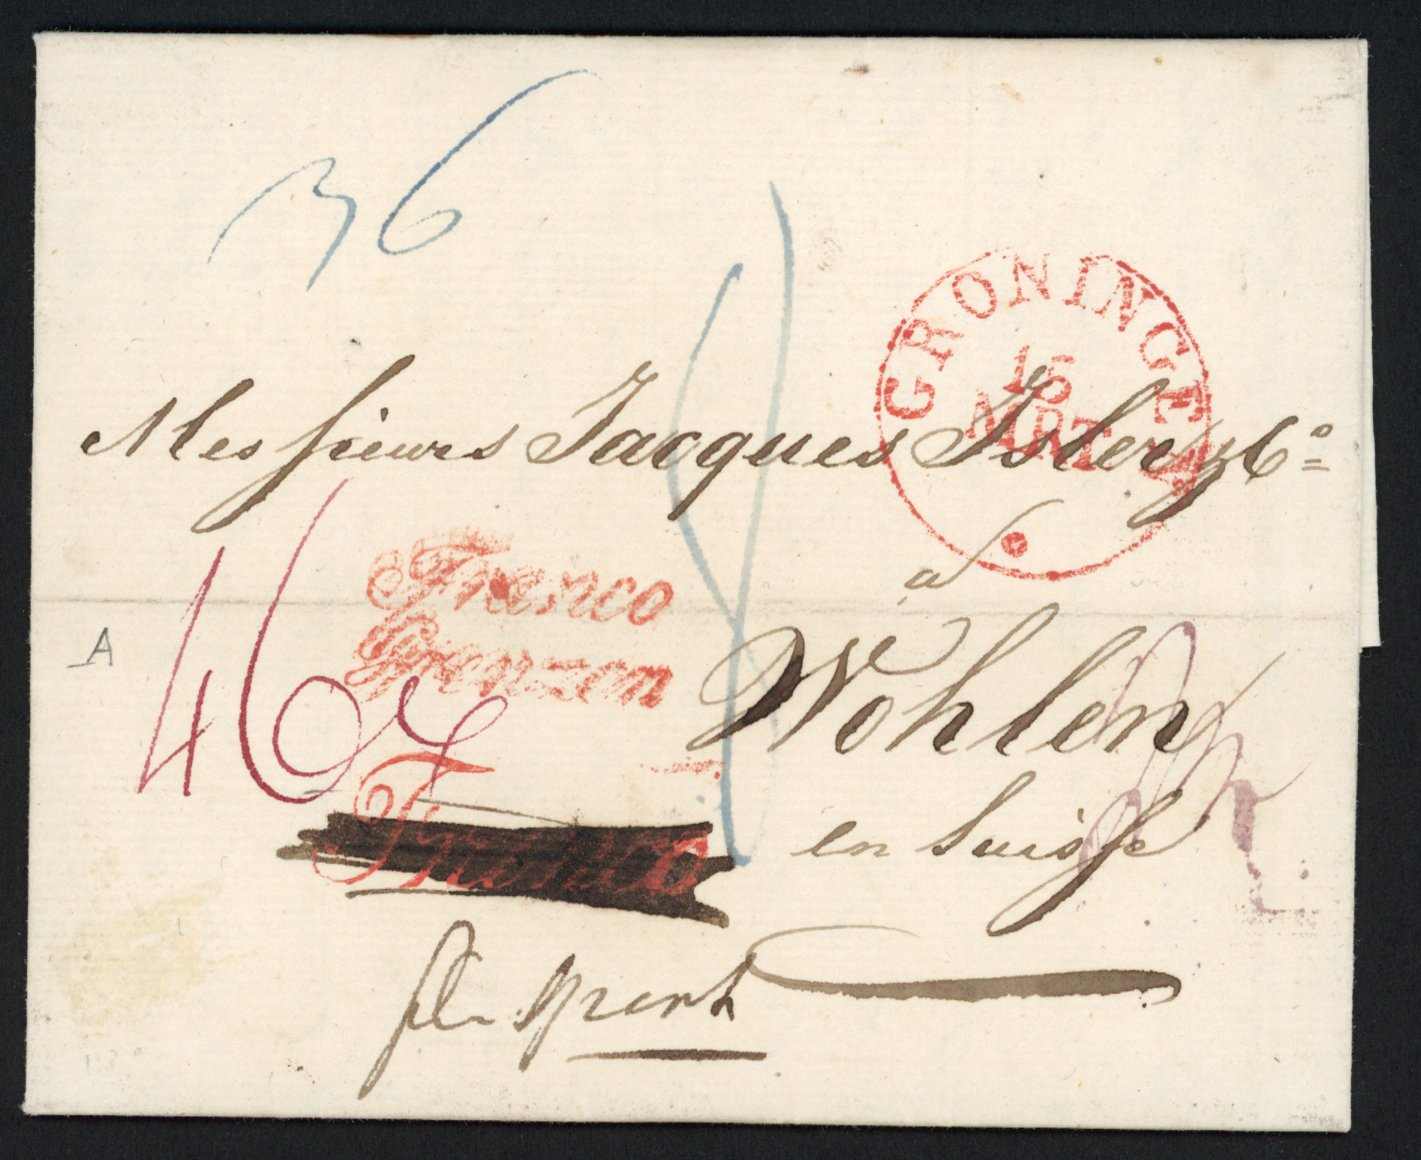 36
GRONINGEN
15
MRT
Messieurs Jacques Isler & Co
à
Franco
Grenzen
A
46
Wohlen
Franco
en Suisse